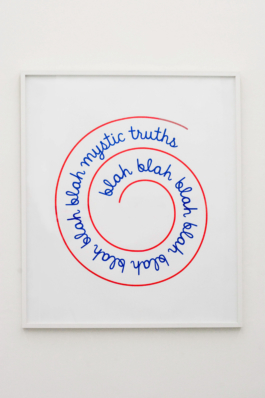 blah blah blah blah blah blah blah blah blah blah mystic truths